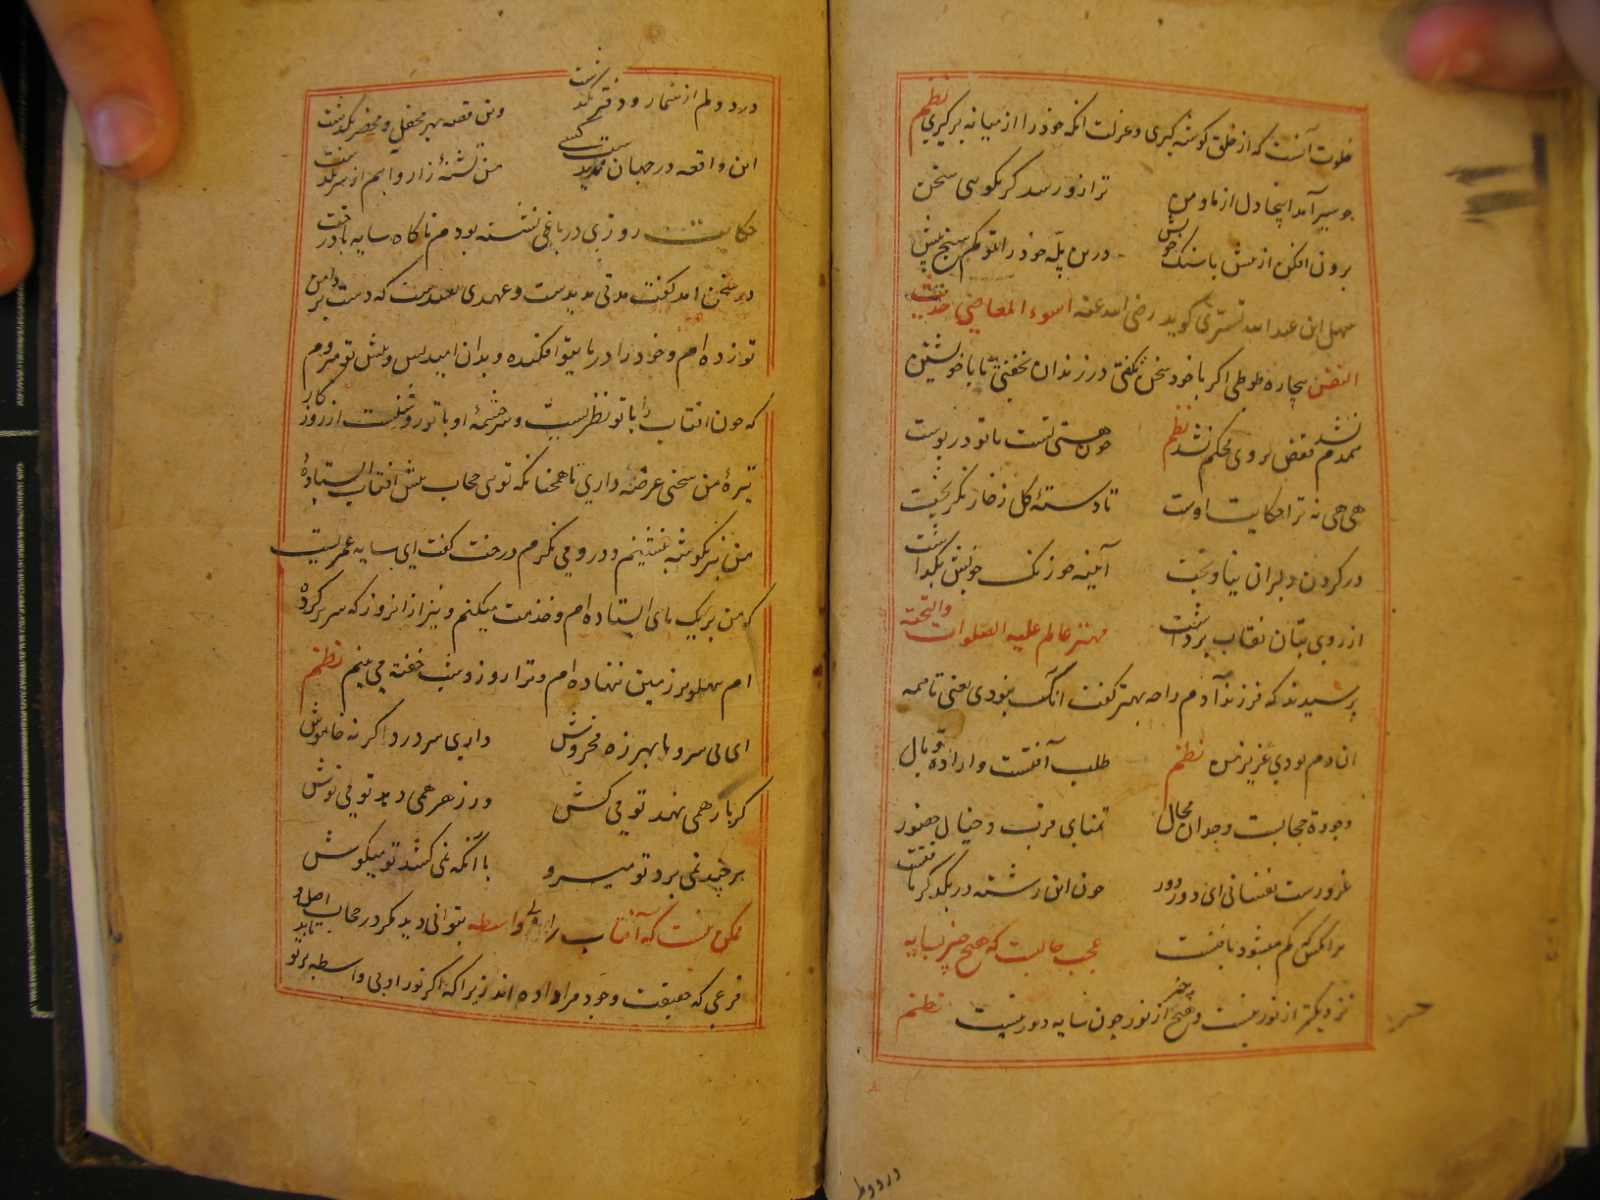 خلوت آنست که از خلق گوشه گیری و عزلت آنکه خود را از میانه برگیری نظم
چو سیر آمد اینجا دل از ما و من ترا زور رسد گر بگویی سخن
برون افکن از پیش با سنگ خویش درین پله خود را تو کم سنج پیش
سهل ابن عبد الله تستری گوید رضی الله عنه اسوء المعاصی حدیث
النفس بیچاره طوطی اگر با خود سخن نگفتی در زندان نخفتی تا با خویشتن
همدم نشد قفص بر وی محکم نشد نظم چون هستی تست با تو در پوست
هی هی نه ترا حکایت اوست تا دسته گل ز خار نگریخت
در گردن دلبران نیاویخت آیینه چو زنگ خویش بگذاشت
از روی بتان نقاب برداشت مهتر عالم علیه الصلوات والتحیة
پرسیدند که فرزند آدم را چه بهتر گفت آنک نبودی یعنی تا همه
آن دم بودی عزیز من نظم طلب آفتست و اراده وبال
وجودت حجابست وجدان محال تمنای قرب و خیال حضور
غرورست نفسانی ای دور دور چون این رشته در یکدگر تافتست
برانکس که گم میشود یافتست عجب حالیست که هیچ چیز بسایه
نزدیکتر از نور نیست و هیچ چیز از نور چون سایه دور نیست نظم
در دو
درد دلم از شمار و دفتر بگذشت وین قصه بهر محفل و محضر بگذشت
این واقعه در جهان ندیدست کسی من تشنه زار و آبم از سر بگذشت
حکایت روزی در باغی نشسته بودم ناگاه سایه با درخت
در سخن آمد گفت مدتی مدیدست و عهدی بعیدست که دست بر دامن
تو زده ام و خود را در پایت افکنده و بدان امید پس و پیش تو میروم
که چون آفتاب را با تو نظریست و سرچشمه او با تو روشنست از روز کار
تیره من سخنی عرضه داری تا همچنانکه تویی حجاب پیش آفتاب ایستاده
من نیز بگوشه بنشینم و در وی نگرم درخت گفت ای سایه عمریست
که من بر یک پای ایستاده ام و خدمت میکنم و نیز از آن روز که سر بر کرده
ام پهلو بر زمین ننهاده ام و ترا روز و شب خفته می بینم نظم
ای بی سر و پا بهرزه مخروش داری سر درد اگر نه خاموش
گر بار همی نهد تو می کش ور زهر همی دهد تو می نوش
هر چند نمی برد تو میرو با آنکه نمی کشد تو میکوش
ممکن نیست که آفتاب را بی واسطه بتوانی دید مگر در حجاب اصل و
فرعی که حقیقت وجود مراد داده اند زیرا که اگر نور او بی واسطه بر تو تابد